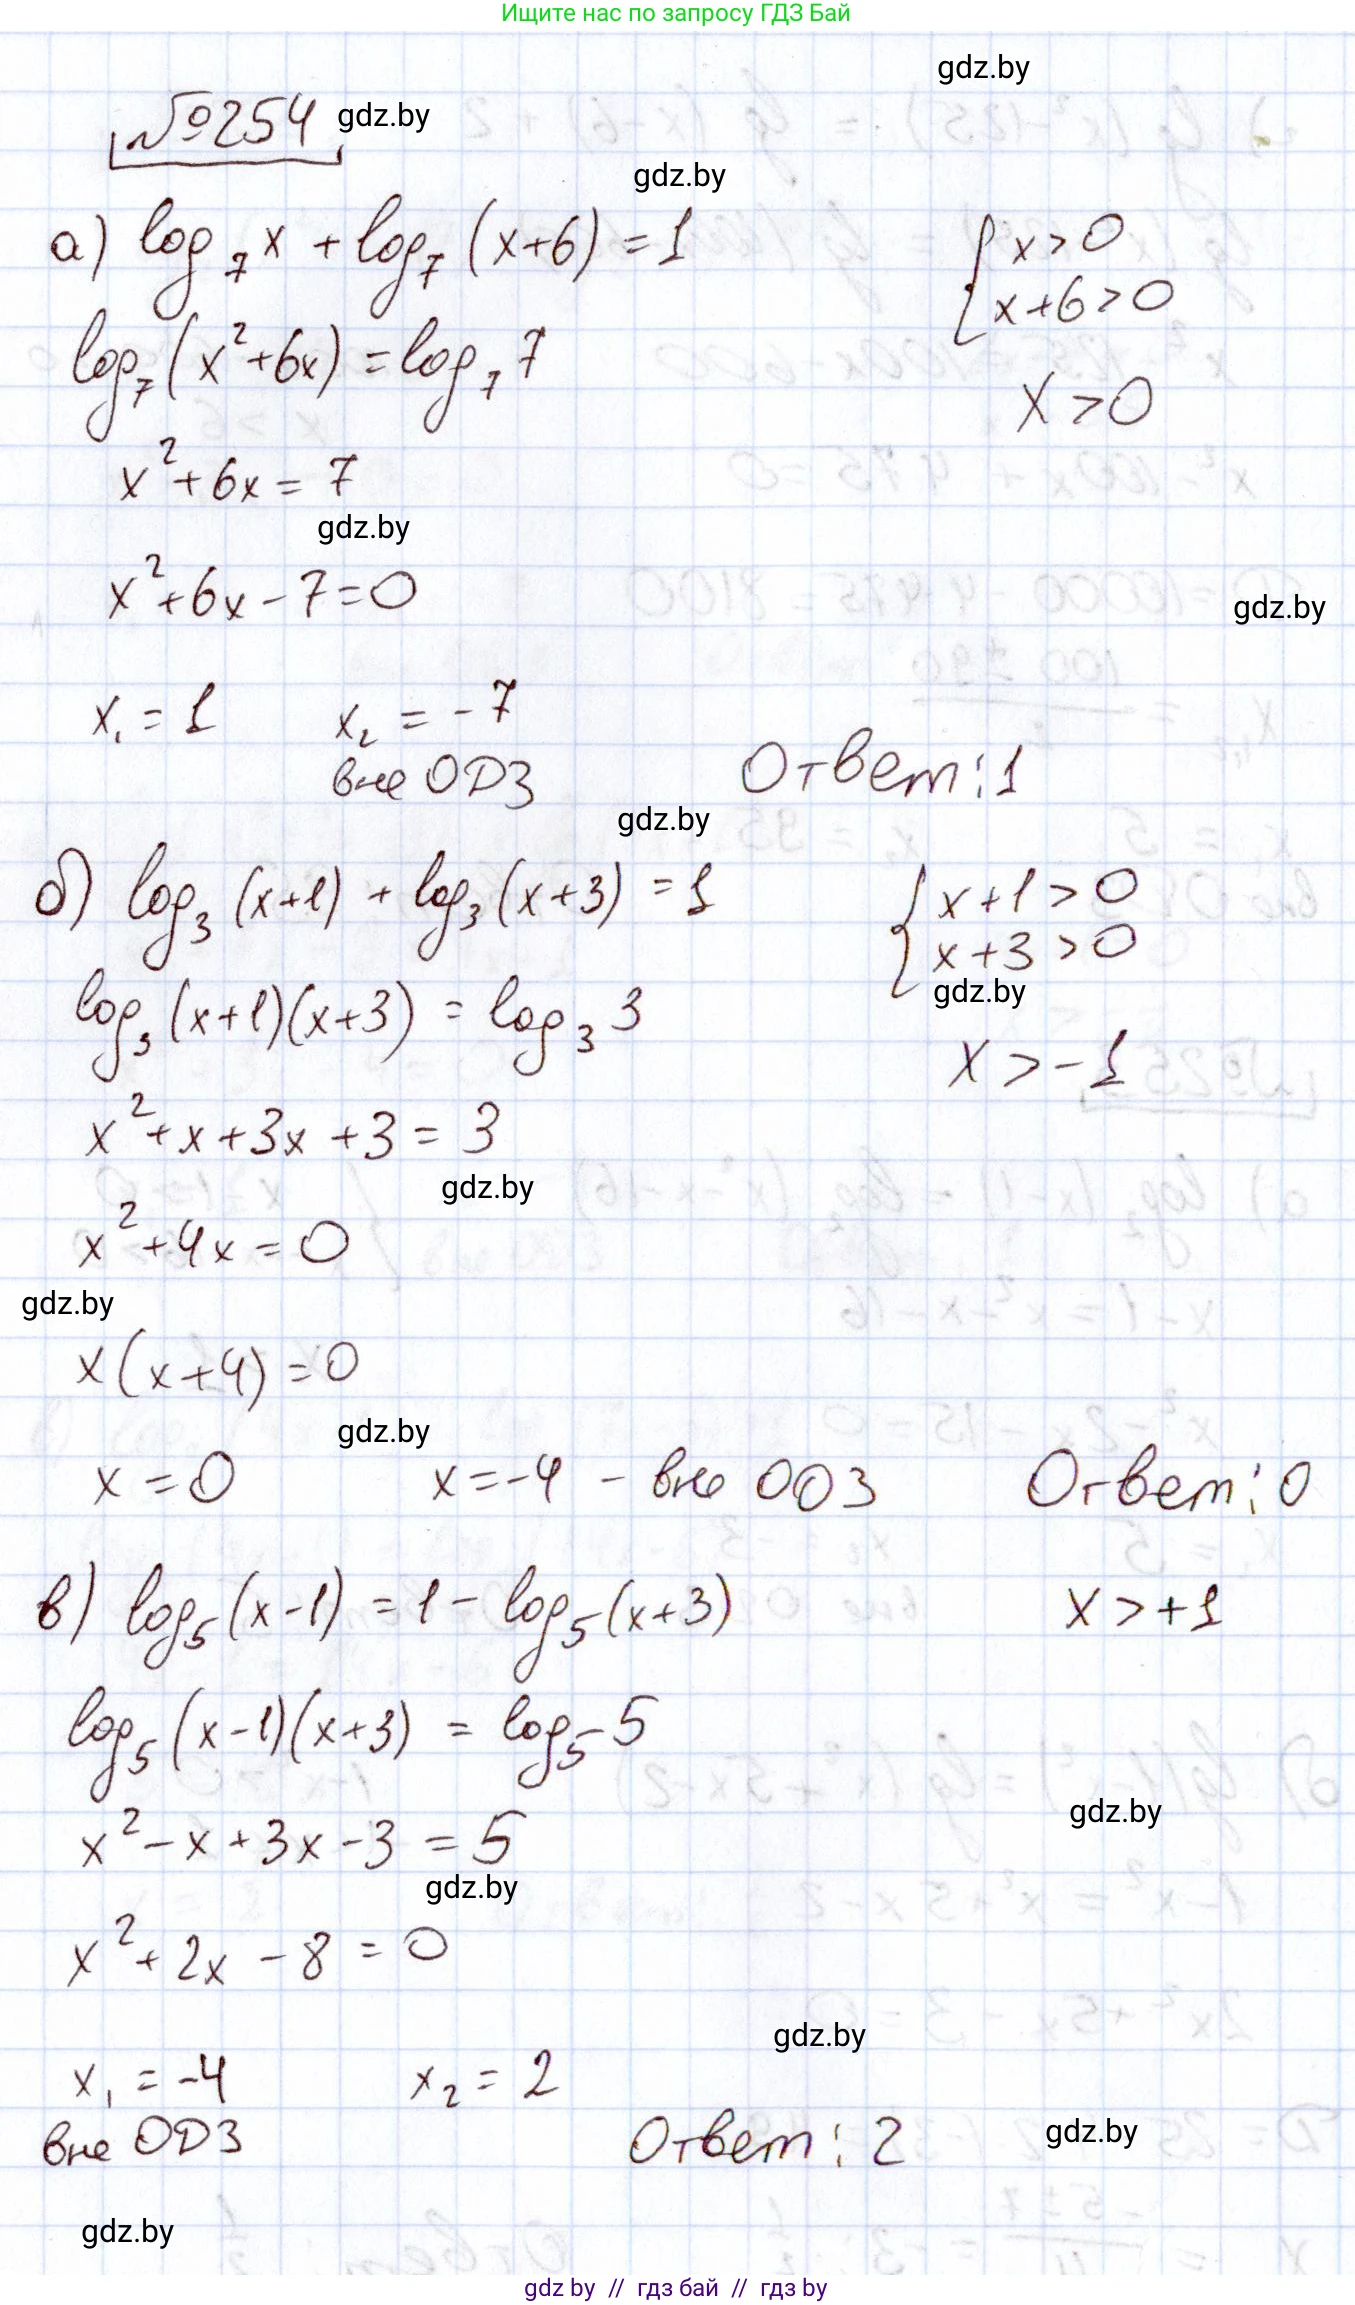 Ищите нас по запросу ГДЗ Бай
gdz.by
№254 gdz.by
gdz.by
а) log₇x + log₇(x+6) = 1 { x>0
x+6>0
log₇(x²+6x) = log₇7 x>0
x²+6x = 7
gdz.by
x²+6x-7=0
gdz.by
x₁ = 1 x₂ = -7
вне ОДЗ Ответ: 1
gdz.by
б) log₃(x+1) + log₃(x+3) = 1 { x+1>0
x+3>0
gdz.by
log₃(x+1)(x+3) = log₃3 x>-1
x²+x+3x+3 = 3
gdz.by
x²+4x=0
gdz.by
x(x+4)=0
gdz.by
x=0 x=-4 - вне ООЗ Ответ: 0
в) log₅(x-1) = 1 - log₅(x+3) x>+1
log₅(x-1)(x+3) = log₅5
gdz.by
x²-x+3x-3 = 5
gdz.by
x²+2x-8=0
gdz.by
x₁ = -4 x₂ = 2
вне ОДЗ Ответ: 2
gdz.by
gdz.by
gdz by // гдз бай // гдз by